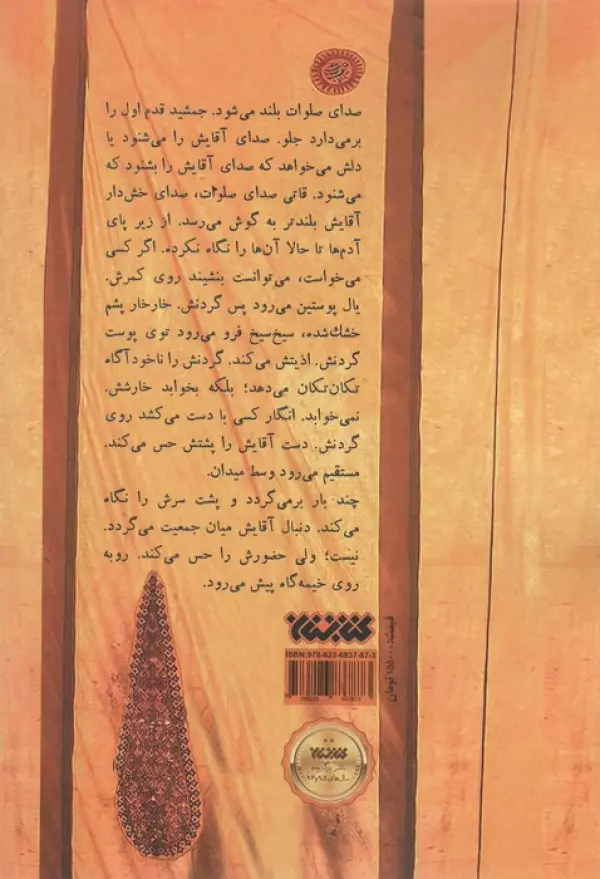 صدای صلوات بلند می‌شود. جمشید قدم اول را
برمی‌دارد جلو. صدای آقایش را می‌شنود یا
دلش می‌خواهد که صدای آقایش را بشنود که
می‌شنود. قاتی صدای صلوات، صدای خش‌دار
آقایش بلندتر به گوش می‌رسد. از زیر پای
آدم‌ها تا حالا آن‌ها را نگاه نکرده. اگر کسی
می‌خواست، می‌توانست بنشیند روی کمرش.
یال پوستین می‌رود پس گردنش. خارخار پشم
خشك‌شده، سیخ‌سیخ فرو می‌رود توی پوست
گردنش. اذیتش می‌کند. گردنش را ناخودآگاه
تکان‌تکان می‌دهد؛ بلکه بخوابد خارشش.
نمی‌خوابد. انگار کسی با دست می‌کشد روی
گردنش. دست آقایش را پشتش حس می‌کند.
مستقیم می‌رود وسط میدان.
چند بار برمی‌گردد و پشت سرش را نگاه
می‌کند. دنبال آقایش میان جمعیت می‌گردد.
نیست؛ ولی حضورش را حس می‌کند. روبه
روی خیمه‌گاه پیش می‌رود.
کتابستان
ISBN: 978-622-6837-87-3
قیمت: ۱۵۵۰۰۰ تومان
کتابستان
ناشر برگزیده
سال‌های ۹۵ و ۹۶